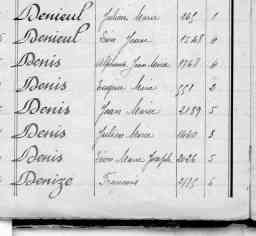 Denieul Julien Marie 245 1
Denieul Jean 1548 6
Denis Alphonse Jean Marie 1768 4
Denis Eugène Marie 551 2
Denis Jean Marie 2189 5
Denis Julien Marie 1460 3
Denis Marie Joseph 2026 5
Denize Francois